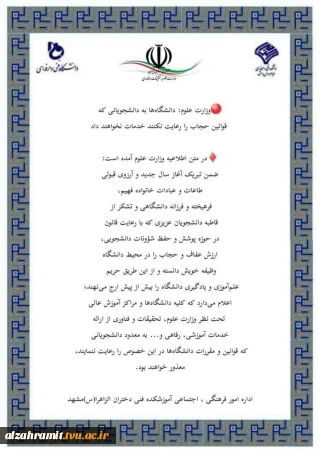 وزارت علوم: دانشگاه‌ها به دانشجویانی که
قوانین حجاب را رعایت نکنند خدمات نخواهند داد
در متن اطلاعیه وزارت علوم آمده است:
ضمن تبریک آغاز سال جدید و آرزوی قبولی
طاعات و عبادات خانواده فهیم،
فرهیخته و فرزانه دانشگاهی و تشکر از
قاطبه دانشجویان عزیزی که با رعایت قانون
در حوزه پوشش و حفظ شؤونات دانشجویی،
ارزش عفاف و حجاب را در محیط دانشگاه
وظیفه خویش دانسته و از این طریق حریم
علم‌آموزی و یادگیری دانشگاه را بیش از پیش ارج می‌نهند؛
اعلام می‌دارد که کلیه دانشگاه‌ها و مراکز آموزش عالی
تحت نظر وزارت علوم، تحقیقات و فناوری از ارائه
خدمات آموزشی، رفاهی و... به معدود دانشجویانی
که قوانین و مقررات دانشگاه‌ها در این خصوص را رعایت ننمایند،
معذور خواهند بود.
اداره امور فرهنگی ، اجتماعی آموزشکده فنی دختران الزاهرا(س)مشهد
alzahramit.tvu.ac.ir